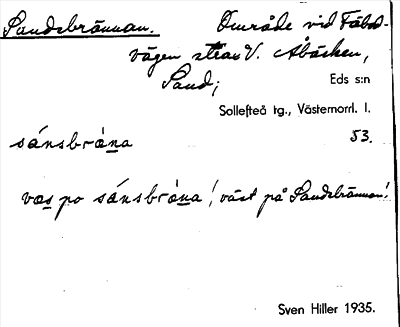 Sandsbrännan. Område vid Fäbod-
vägen strax V. Åbäcken,
Sand; Eds s:n
Sollefteå tg., Västernorrl. l.
sánsbrὰna 53.
vas po sánsbrὰna! väst på Sandsbrännan!
Sven Hiller 1935.